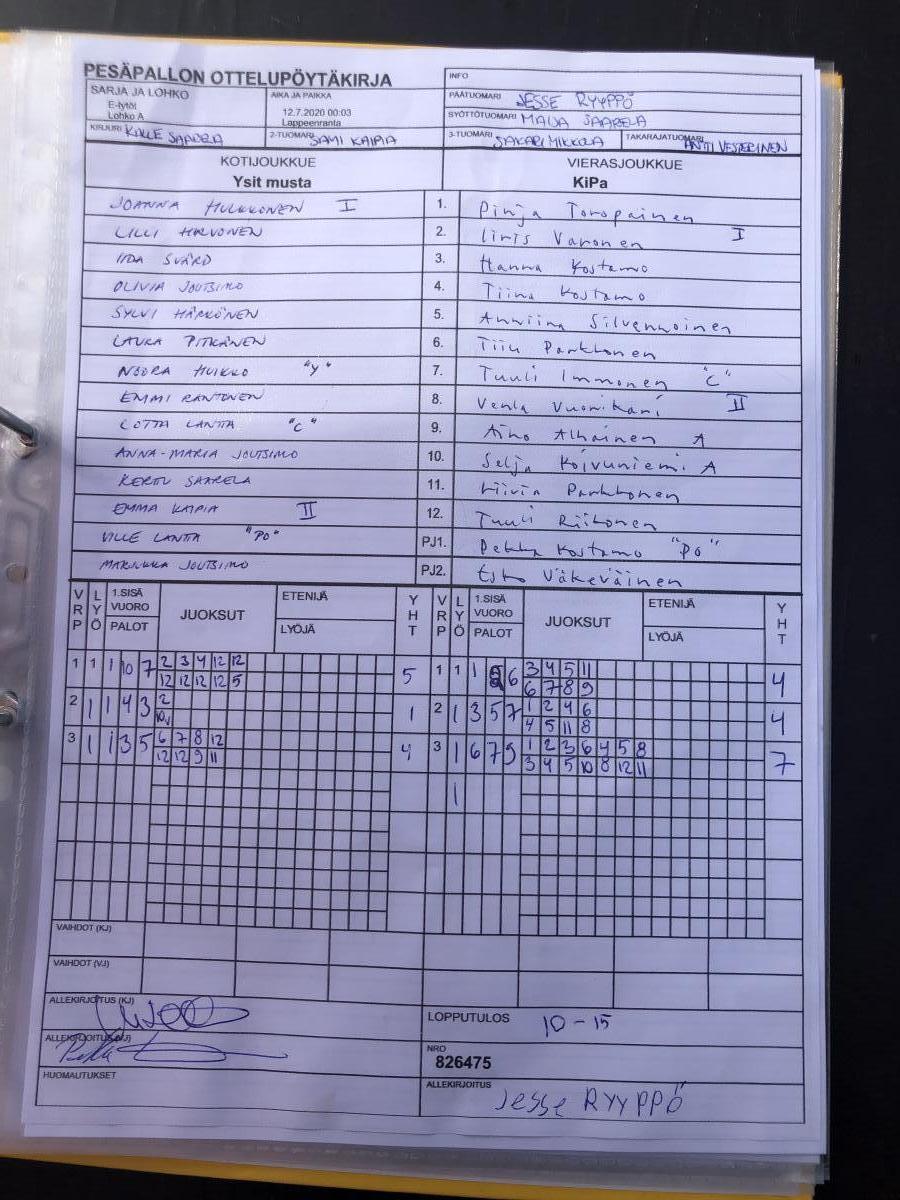 PESÄPALLON OTTELUPÖYTÄKIRJA
INFO
SARJA JA LOHKO
E-tytöt
Lohko A
AIKA JA PAIKKA
12.7.2020 00:03
Lappeenranta
PÄÄTUOMARI JESSE RYYPPÖ
SYÖTTÖTUOMARI MAIJA SAARELA
KIRJURI KALLE SAARELA
2-TUOMARI SAMI KAIPIA
3-TUOMARI SAKARI MIKKOLA
TAKARAJATUOMARI ANTTI VESTERINEN
KOTIJOUKKUE
Ysit musta
VIERASJOUKKUE
KiPa
JOANNA HULKKONEN I 1. Pinja Toropainen
LILLI HALVONEN 2. Iiris Varonen I
IIDA SVÄRD 3. Hanna Kostamo
OLIVIA JOUTSIMO 4. Tiina Kostamo
SYLVI HÄRKÖNEN 5. Anniina Silvennoinen
LAURA PITKÄNEN 6. Tiiu Parkkonen
NOORA HUIKKO "Y" 7. Tuuli Immonen "C"
EMMI RANTONEN 8. Venla Vuorikari II
LOTTA LANTTA "C" 9. Aino Alhainen A
ANNA-MARIA JOUTSIMO 10. Selja Koivuniemi A
KERTU SAARELA 11. Liivia Parkkonen
EMMA KAIPIA II 12. Tuuli Riikonen
VILLE LANTTA "PO" PJ1. Pekka Kostamo "PO"
MARJUKKA JOUTSIMO PJ2. Esko Väkeväinen
VRP LYÖ 1.SISÄ VUORO PALOT JUOKSUT ETENIJÄ LYÖJÄ YHT VRP LYÖ 1.SISÄ VUORO PALOT JUOKSUT ETENIJÄ LYÖJÄ YHT
1 1 1 10 7 2 3 4 12 12 5 1 1 1 6 3 4 5 11 4
12 12 12 12 5 6 7 8 9
2 1 1 4 3 2 1 2 1 3 5 7 1 2 4 6 4
4 5 11 8
3 1 1 3 5 6 7 8 12 4 3 1 6 7 9 1 2 3 6 4 5 8 7
12 12 9 11 3 4 5 10 8 12 11
1
VAIHDOT (KJ)
VAIHDOT (VJ)
ALLEKIRJOITUS (KJ)
ALLEKIRJOITUS (VJ)
LOPPUTULOS 10-15
NRO
826475
HUOMAUTUKSET
ALLEKIRJOITUS
Jesse RYYPPÖ